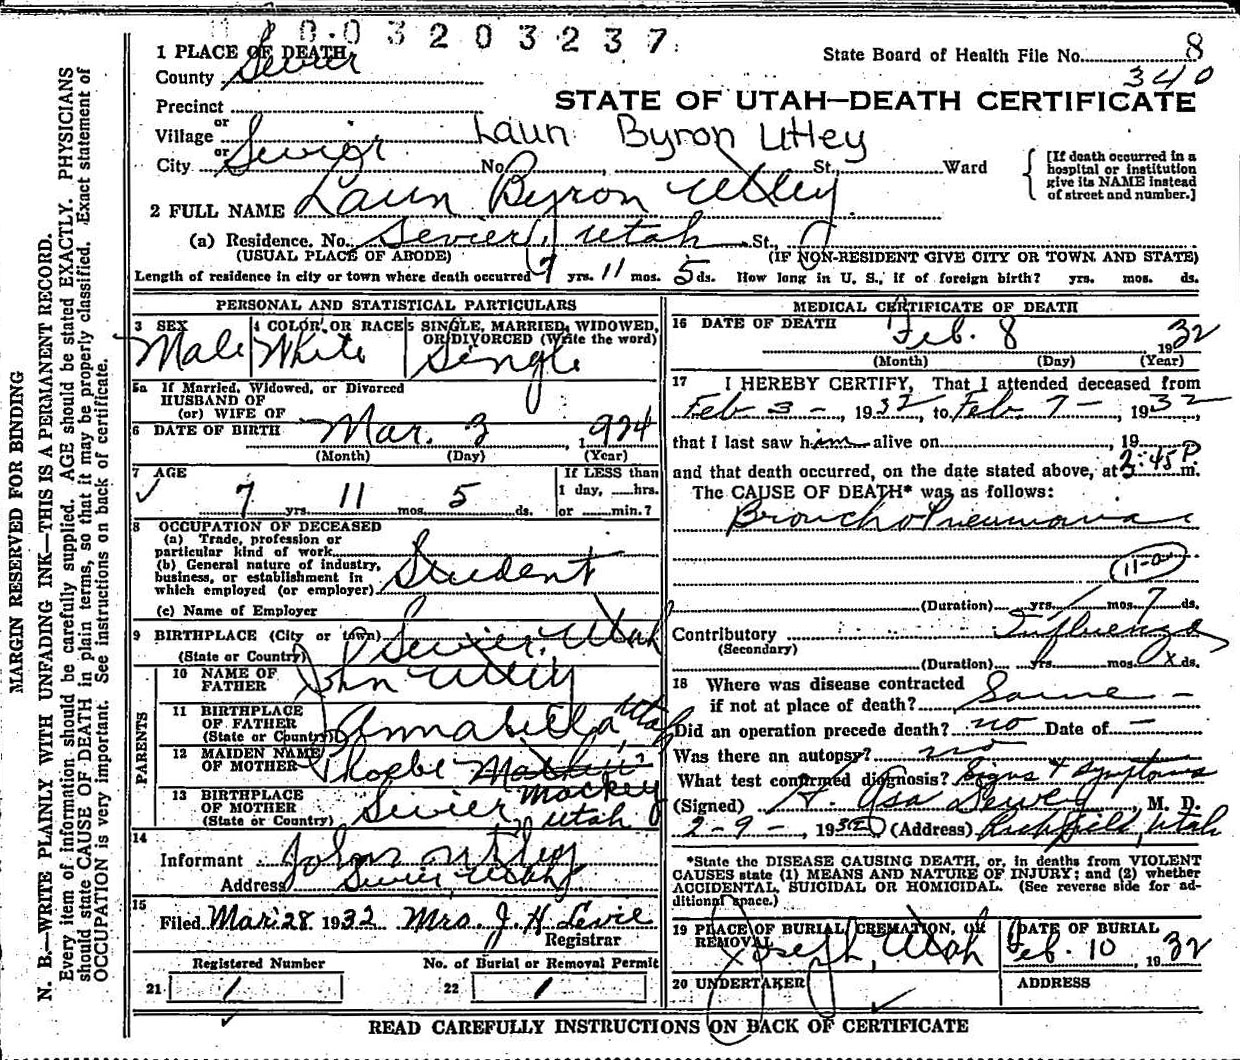 0 0 3 2 0 3 2 3 7
1 PLACE OF DEATH
State Board of Health File No. 8
County Sevier
340
STATE OF UTAH—DEATH CERTIFICATE
Precinct
or
Village
Laun Byron Utley
or
City Sevier No. St., Ward
[If death occurred in a hospital or institution give its NAME instead of street and number.]
2 FULL NAME Laun Byron Utley
(a) Residence. No. Sevier, Utah St.,
(USUAL PLACE OF ABODE) (IF NON-RESIDENT GIVE CITY OR TOWN AND STATE)
Length of residence in city or town where death occurred 7 yrs. 11 mos. 5 ds. How long in U. S., if of foreign birth? yrs. mos. ds.
PERSONAL AND STATISTICAL PARTICULARS
3 SEX 4 COLOR OR RACE 5 SINGLE, MARRIED, WIDOWED, OR DIVORCED (Write the word)
Male White Single
5a If Married, Widowed, or Divorced
HUSBAND OF
(or) WIFE OF
6 DATE OF BIRTH Mar. 3 1924
(Month) (Day) (Year)
7 AGE If LESS than
7 yrs. 11 mos. 5 ds. 1 day, hrs. or min.?
8 OCCUPATION OF DECEASED
(a) Trade, profession or
particular kind of work
(b) General nature of industry,
business, or establishment in
which employed (or employer) Student
(c) Name of Employer
9 BIRTHPLACE (City or town) Sevier, Utah
(State or Country)
PARENTS
10 NAME OF
FATHER John Utley
11 BIRTHPLACE
OF FATHER
(State or Country) Annabella, Utah
12 MAIDEN NAME
OF MOTHER Phoebe Mackey
13 BIRTHPLACE
OF MOTHER
(State or Country) Sevier, Utah
14
Informant John Utley
Address Sevier, Utah
15
Filed Mar 28 1932 Mrs. J. H. Levie
Registrar
Registered Number No. of Burial or Removal Permit
21 1 22 1
MEDICAL CERTIFICATE OF DEATH
16 DATE OF DEATH Feb. 8 1932
(Month) (Day) (Year)
17 I HEREBY CERTIFY, That I attended deceased from
Feb 3 - , 1932, to Feb 7 - , 1932,
that I last saw him alive on , 19
and that death occurred, on the date stated above, at 2:45 P m.
The CAUSE OF DEATH* was as follows:
Broncho Pneumonia
11-a
(Duration) yrs. mos. 7 ds.
Contributory Influenza
(Secondary)
(Duration) yrs. mos. x ds.
18 Where was disease contracted
if not at place of death? Same -
Did an operation precede death? no Date of -
Was there an autopsy? no
What test confirmed diagnosis? Signs & Symptoms
(Signed) H. Asa Dewey, M. D.
2-9-, 1932 (Address) Richfield, Utah
*State the DISEASE CAUSING DEATH, or, in deaths from VIOLENT
CAUSES state (1) MEANS AND NATURE OF INJURY; and (2) whether
ACCIDENTAL, SUICIDAL OR HOMICIDAL. (See reverse side for ad-
ditional space.)
19 PLACE OF BURIAL, CREMATION, OR DATE OF BURIAL
REMOVAL Joseph, Utah Feb. 10, 1932
20 UNDERTAKER ADDRESS
READ CAREFULLY INSTRUCTIONS ON BACK OF CERTIFICATE
MARGIN RESERVED FOR BINDING
N. B.—WRITE PLAINLY WITH UNFADING INK—THIS IS A PERMANENT RECORD.
Every item of information should be carefully supplied. AGE should be stated EXACTLY. PHYSICIANS
should state CAUSE OF DEATH in plain terms, so that it may be properly classified. Exact statement of
OCCUPATION is very important. See instructions on back of certificate.